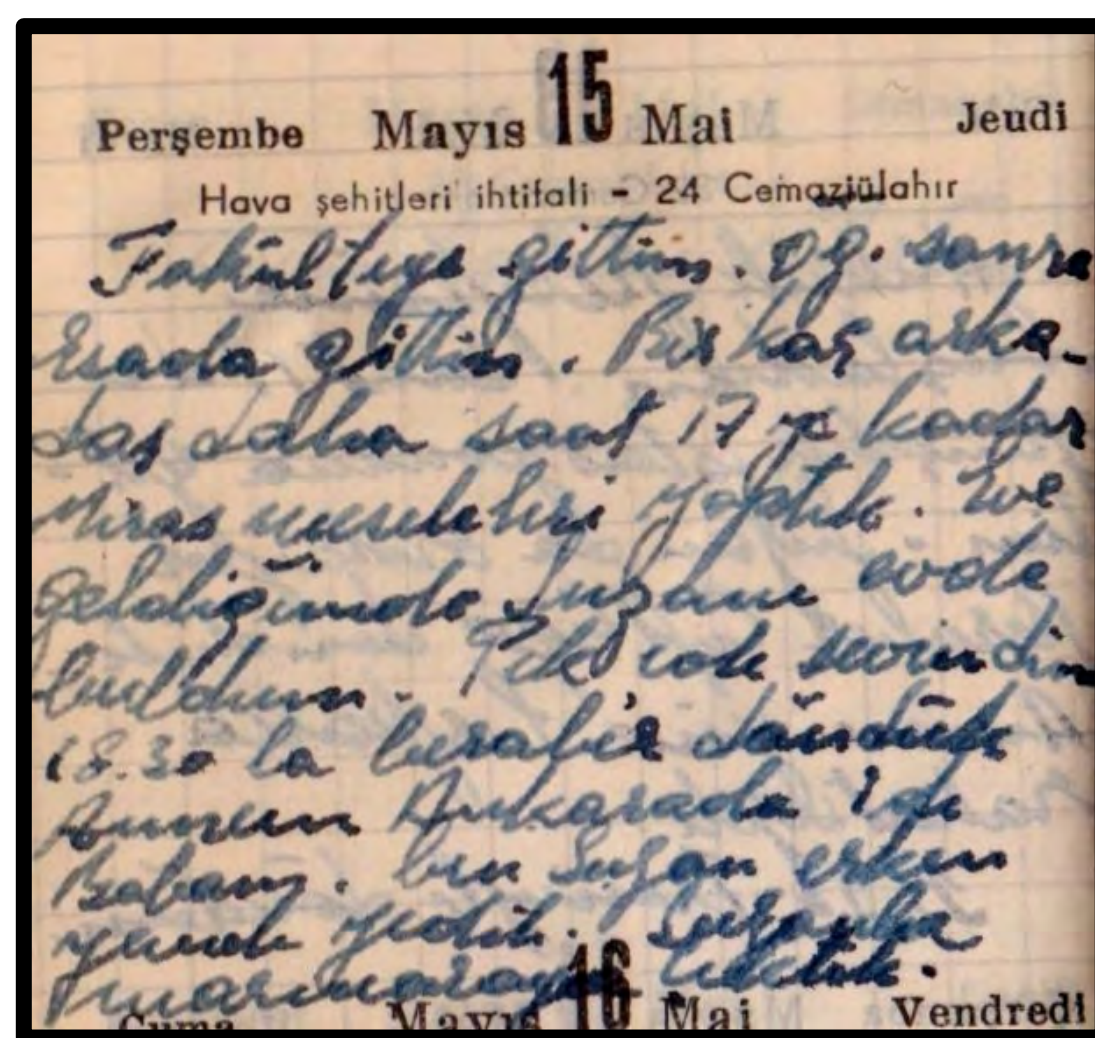 Perşembe Mayıs 15 Mai Jeudi
Hava şehitleri ihtifali - 24 Cemaziülahır
Fakülteye gittim. Öğ. sonra
Esada gittim. Bir kaç arka-
daş daha saat 17 ye kadar
Miras meseleleri yaptık. Eve
geldiğimde Suzanı evde
buldum. Pek çok sevindim
18.30 la beraber döndük
Annem Ankarada idi
Babam. ben Suzan erken
yemek yedik. Suzanla
marmaraya
Cuma Mayıs 16 Mai Vendredi